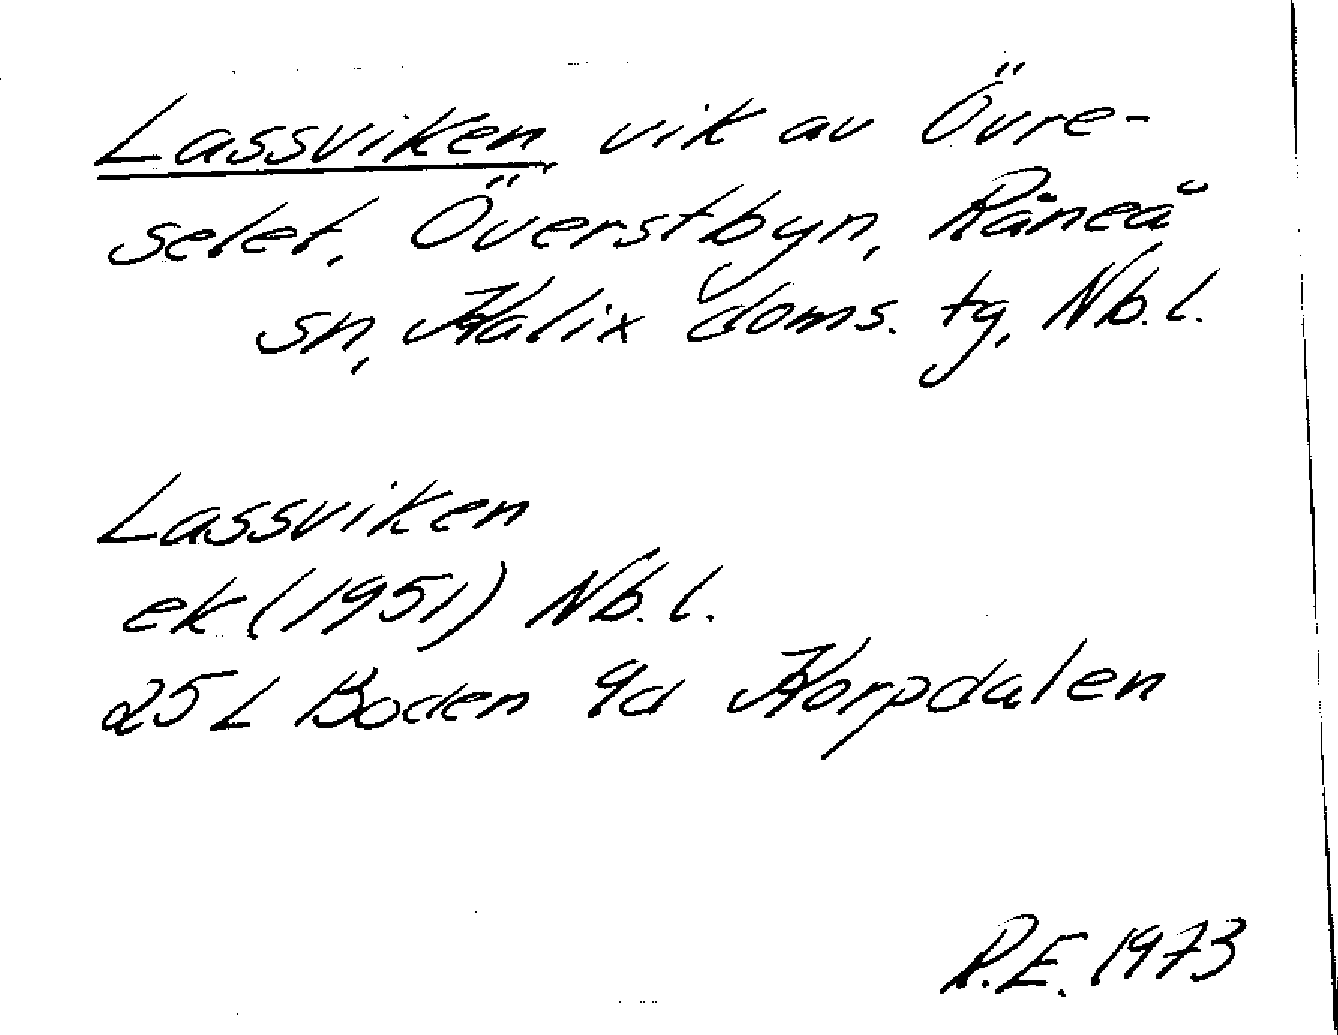 Lassviken, vik av Övre-
selet, Överstbyn, Råneå
sn, Kalix doms. tg, Nb.l.
Lassviken
ek (1951) Nb.l.
25 L Boden 9d Korpdalen
R.E. 1973